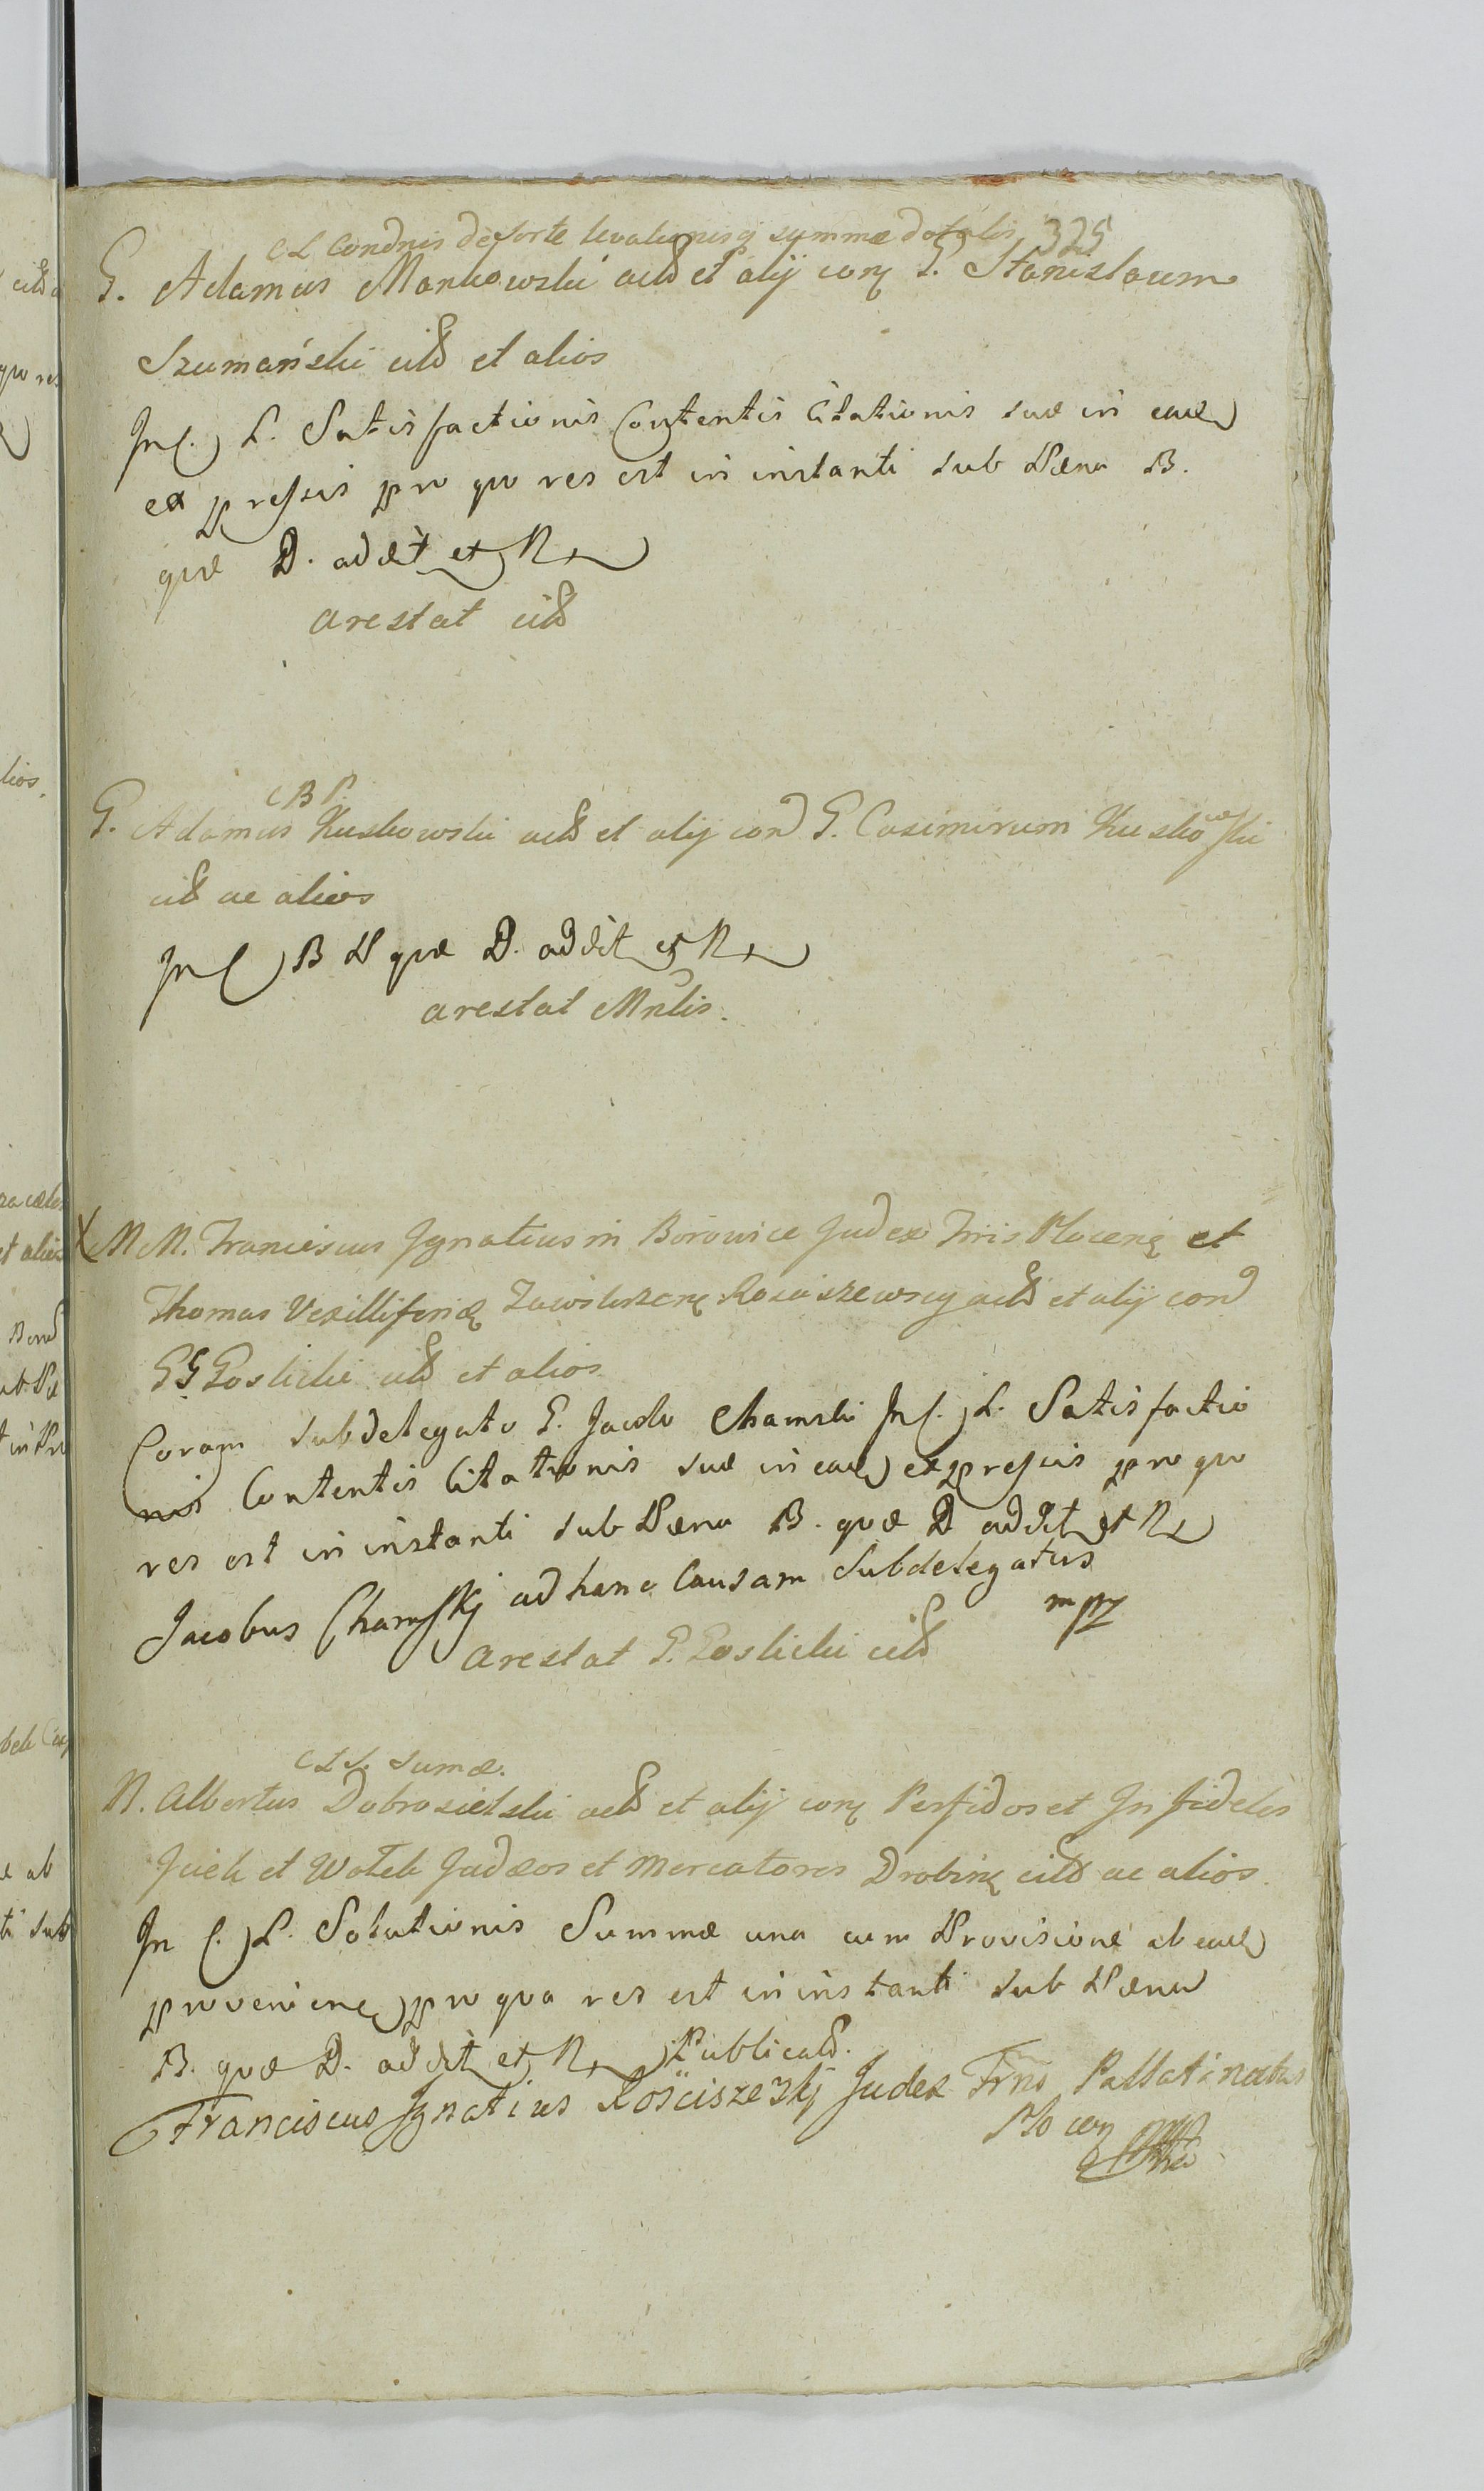 CL Condnis de sorte levationisq summæ dotalis 325
G. Adamus Mankowski actt et alij conq G. Stanislaum
Szumański citt et alios
In C. L. Satisfactionis Contentis Citationis suæ in eaue
expressis pro quo res est in instanti sub Pæna B.
quæ D. addit et R
arestat citt
CBP.
G. Adamus Kuskowski actt et alij con G. Casimirum Kuskowski
citt ac alios
In C B P quæ D. addit et R
arestat Mnlis.
X MM. Franciscus Jgnatius in Borowice Judex Trris Plocenq et
Thomas Vexilliferidæ Zawskrzenq Rosciszewscy actt et alij con
GG Goslickie citt et alios
Coram subdelegato G. Jacobo Chamski In C. L. Satisfactio
nis Contentis Citationis suæ in eaue expressis pro quo
res est in instanti sub Pæna B. quæ D addit et R
Jacobus Chamskj ad hanc Causam Subdelegatus
mpz
arestat G. Goslicki citt
CLS. sumæ.
N. Albertus Dobrosielski actt et alij conq Perfidos et Jnfideles
Jciek et Wolek Judæos et Mercatores Drobinq citt ac alios.
In C. L. Solutionis Summæ una cum Provisione ab eaue
provenienq pro qua res est in instanti sub Pæna
B. quæ D. addit et R Publicatt.
Franciscus Jgnatius Rościszeskj Judex Trns Pallatinatus
Plocen